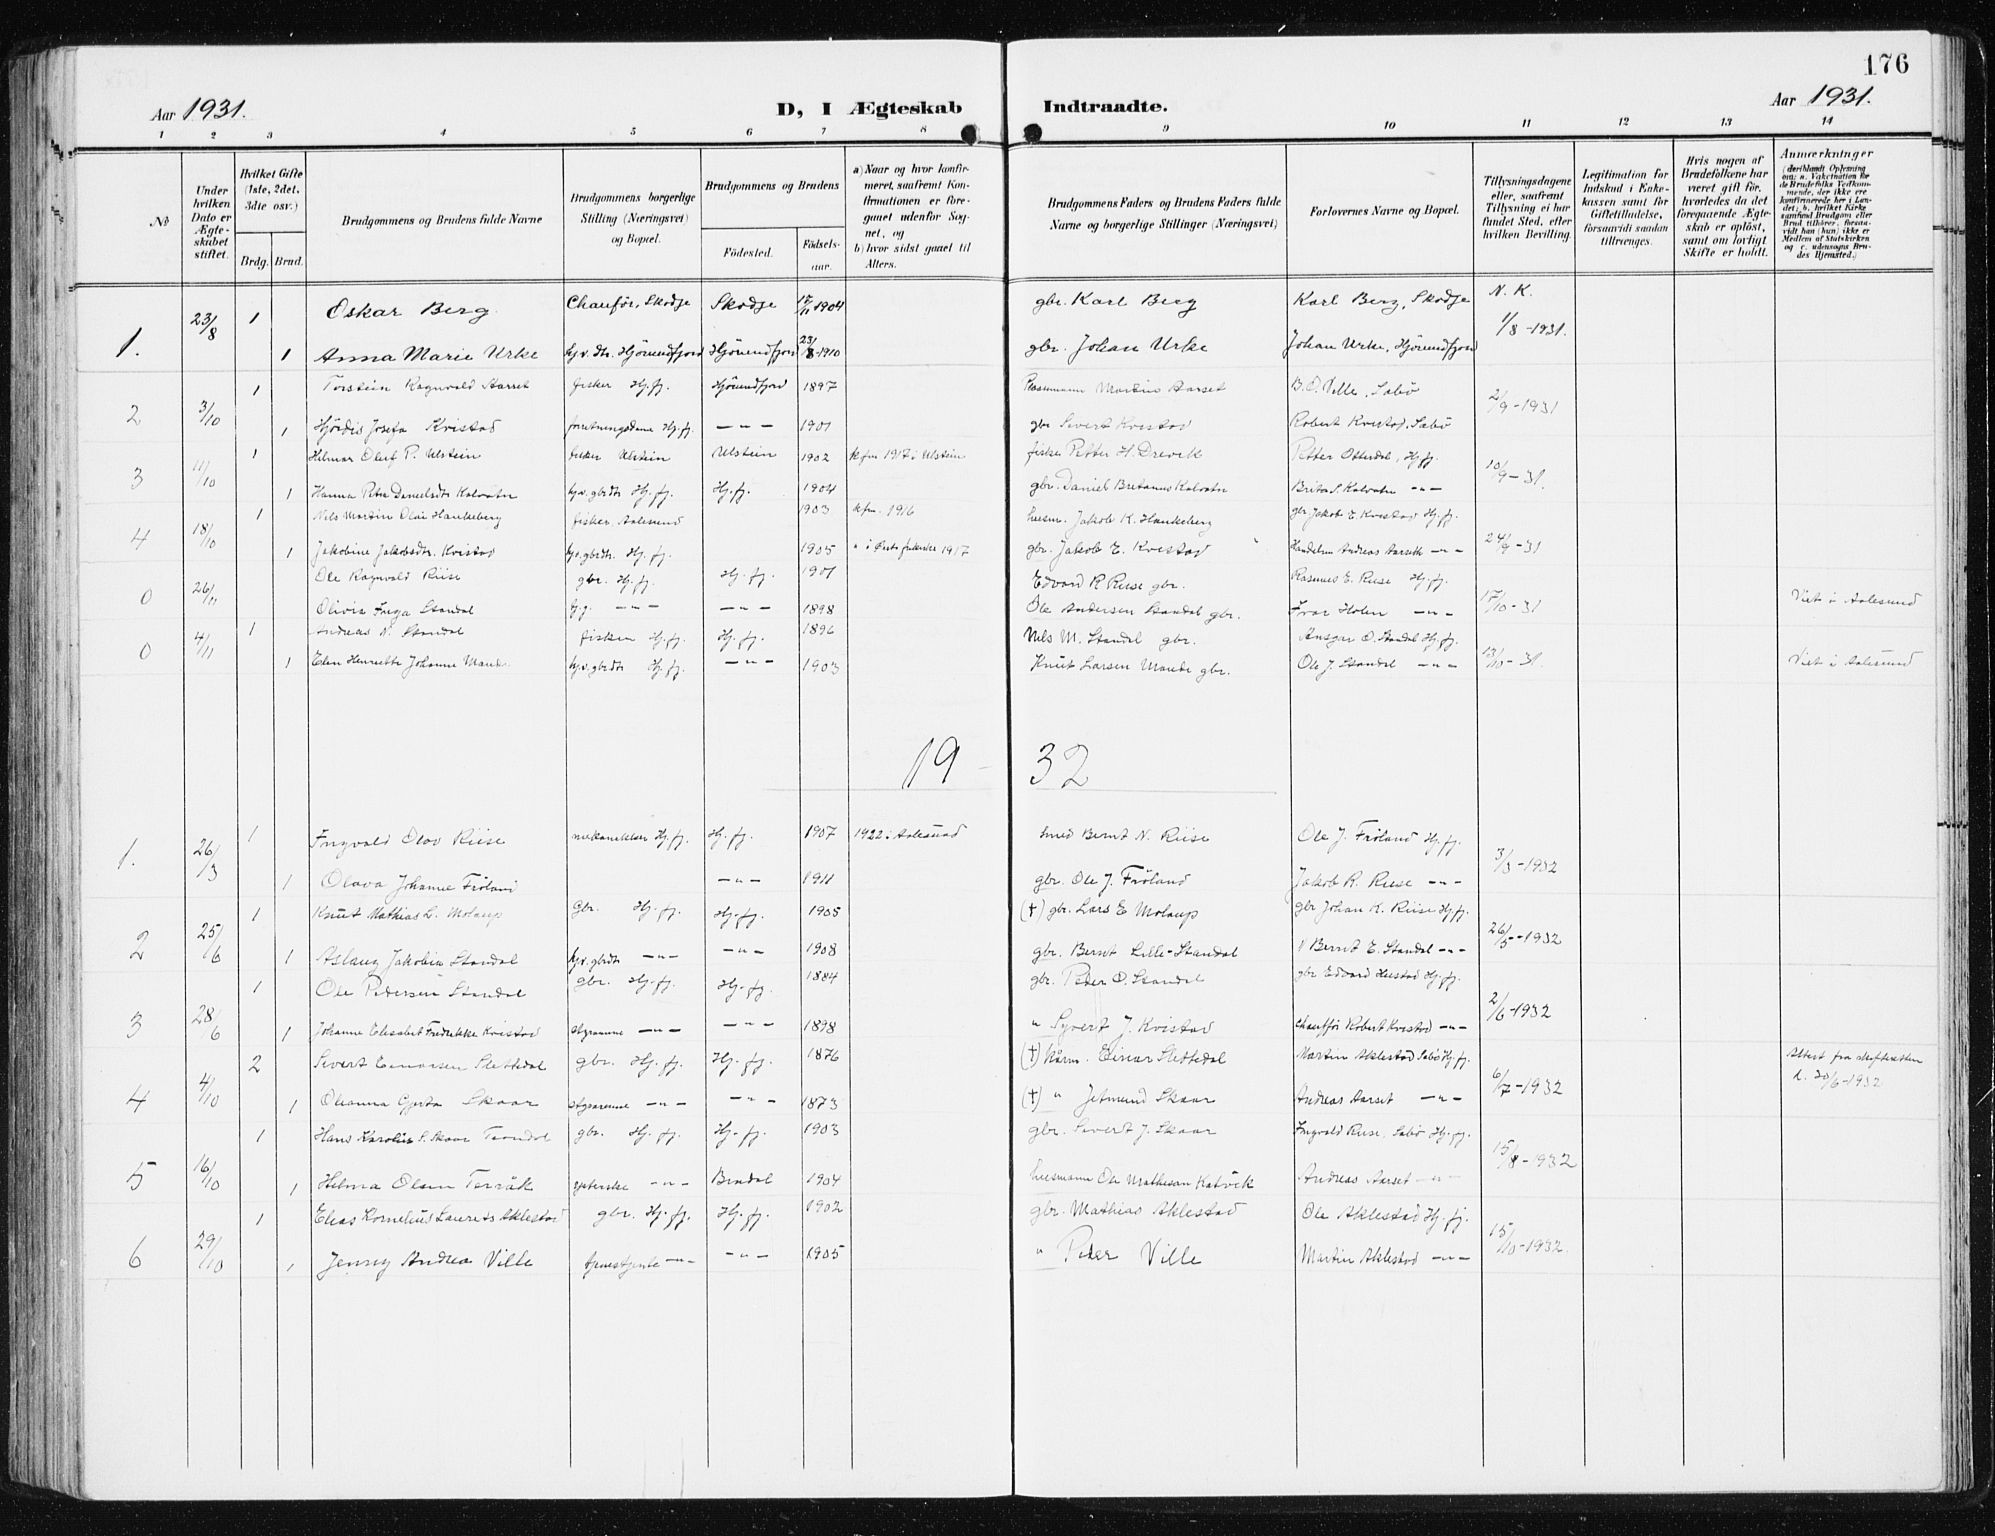 176
Aar 1931.
D, I Ægteskab Indtraadte.
Aar 1931.
1 2 3 4 5 6 7 8 9 10 11 12 13 14
No
Under hvilken Dato er Ægteskabet stiftet.
Hvilket Gifte (1ste, 2det, 3die osv.)
Brdg. Brud.
Brudgommens og Brudens fulde Navne
Brudgommens borgerlige Stilling (Næringsvei) og Bopæl.
Brudgommens og Brudens
Fødested.
Fødselsaar.
a) Naar og hvor konfirmeret, saafremt Konfirmationen er foregaaet udenfor Sognet, og
b) hvor sidst gaaet til Alters.
Brudgommens Faders og Brudens Faders fulde Navne og borgerlige Stillinger (Næringsvei)
Forlovernes Navne og Bopæl.
Tillysningsdagene eller, saafremt Tillysning ei har fundet Sted, efter hvilken Bevilling.
Legitimation for Indskud i Enkekassen samt for Giftetilladelse, forsaavidt saadan tiltrænges.
Hvis nogen af Brudefolkene har været gift før, hvorledes da det foregaaende Ægteskab er opløst, samt om lovligt Skifte er holdt.
Anmærkninger
1. 23/8 1 Oskar Berg Chaufør, Skodje Skodje 17/11 1904 gbr. Karl Berg Karl Berg, Skodje N. K. 1/8-1931.
1 Anna Marie Urke hjv. dtr. Hjörundfjord Hjörundfjord 23/8-1910 gbr. Johan Urke Johan Urke, Hjörundfjord
2 3/10 1 Torstein Ragnvald Aarset fisker Hj.fj. Hjörundfjord 1897 Martin Aarset B. O. Ville, Sæbø 2/9-1931
1 Hjördis Josefa Kvistad forretningsdame Hj.fj. -"- 1901 gbr Sivert Kvistad Robert Kvistad, Sæbø
3 11/10 1 Hilmar Oluf P. Ulstein fisker Ulstein Ulstein 1902 kfm 1917 i Ulstein fisker Petter H. Drevik Petter Otterdal, Hj.fj. 10/9-31.
1 Hanna Petra Danielsdtr Kalvatn hjv. gbrdtr Hj. fj. Hj.fj. 1904 gbr. Daniel Kalvatn Kalvatn -"-
4 18/10 1 Nils Martin Olai Hankeberg fisker, Aalesund 1903 kfm. 1916 husm. Jakob K. Hankeberg gbr Jakob E. Kvistad Hj. fj. 24/9-31
1 Jakobine Jakobsdtr. Kvistad hjv. gbrdtr. Hj. fj. 1905 " i 1917 gbr. Jakob E. Kvistad Andreas Aarseth -"-
0 26/11 Ole Ragnvald Riise gbr. Hj. fj. Hj. fj. 1901 Edvard R Riise gbr. Rasmus E. Riise Hj. fj. 17/10-31 Viet i Aalesund
Olivia Inga Standal -"- -"- 1898 Ole Andersen Standal gbr. Ivar Holen -"-
0 4/11 1 Andreas N. Standal fisker Hj. fj. Hj. fj. 1896 Nils M. Standal gbr. Ansgar O. Standal Hj. fj. 13/10-31. Viet i Aalesund
1 Elen Henriette Johanne hjv. gbrdtr Hj. fj. -"- 1903 Knut Larsen gbr. Ole J. Standal -"-
19 32
1. 26/3 1 Ingvald Olav Riise Hj. fj. Hj. fj. 1907 1922 i Aalesund smed Bernt N. Riise Ole J. Fröland Hj. fj. 3/3-1932
1 Olava Johanne Fröland -"- 1911 gbr. Ole J. Fröland Jakob R. Riise -"-
2 25/6 1 Knut Mathias L. Molaup Gbr. Hj. fj. Hj. fj. 1905 (†) gbr. Lars E Molaup gbr Johan K. Riise Hj. fj. 26/5-1932
1 Aslaug Jakobia Standal hjv. gbrdtr -"- -"- 1908 gbr. Bernt Lille-Standal " Bernt E. Standal -"-
3 28/6 1 Ole Pedersen Standal gbr. Hj. fj. Hj. fj. 1884 gbr. Peder O. Standal gbr Edvard Hustad Hj. fj. 2/6-1932
1 Johanne Elisabet Fredrikke Kvistad -"- -"- 1898 " Syvert J. Kvistad Chauffør Robert Kvistad -"-
4 4/10 2 Sivert Einarsen Slettedal gbr. Hj. fj. Hj. fj. 1876 (†) Einar Slettedal Martin Aklestad Sæbø Hj. fj. 6/7-1932 Attest fra skifteretten d. 30/6-1932
1 Oleanna Gjerta Skaar -"- -"- 1873 (†) " Jetmund Skaar Andreas Aarset -"-
5 16/10 1 Hans Karolius S. Skaar gbr. Hj. fj. Hj. fj. 1903 gbr. Sivert J. Skaar Ingvald Riise, Sæbø Hj. fj. 15/8-1932
1 Helma Olsen Terråk -"- Bindal 1904 husmann Ole Mathisan Andreas Aarset -"-
6 29/10 1 Elias Kornelius Laurets Aklestad gbr. Hj. fj. Hj. fj. 1902 gbr. Mathias Aklestad Ole Aklestad Hj. fj. 15/10-1932.
1 Jenny Andrea Ville tjenestjente -"- -"- 1905 " Peder Ville Martin Aklestad -"-